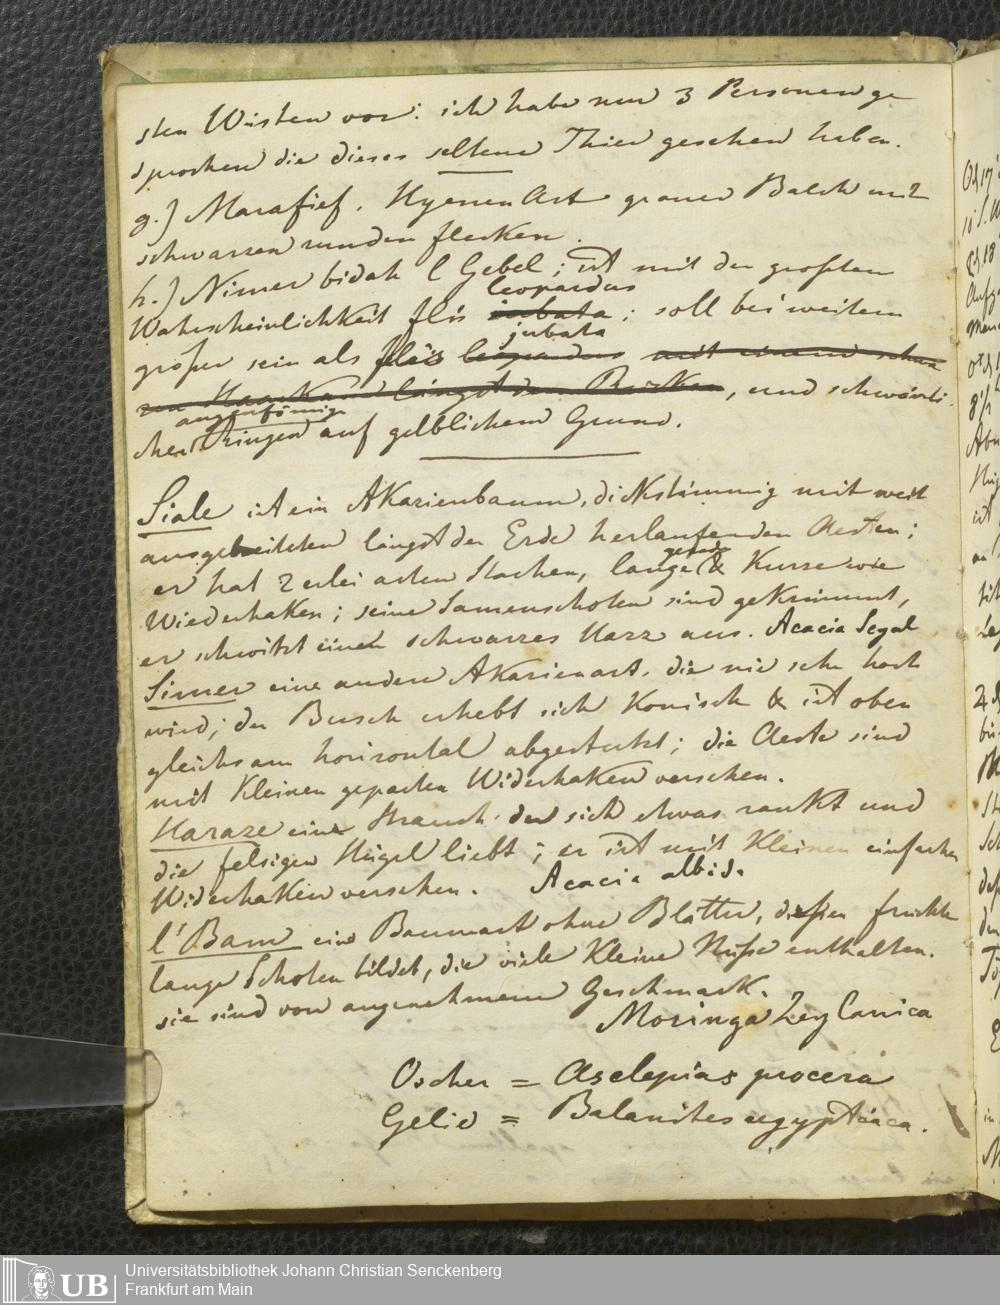 sten Wüsten vor: ich habe nur 3 Personen ge
sprochen die dieses seltene Thier gesehen haben.
g.) Marafief. Hyenen Art grauer Balch mit
schwarzen runden flecken.
h.) Nimer bidah l Gebel; ist mit der grosten
leopardus
Wahrscheinlichkeit flis jubata; soll bei weitem
jubata
größer sein als flis leopardus mit einem schwa
zen Haarkamd längst den Rücken, und schwärzli-
augenförmige
chen Ringen auf gelblichem Grund.
Siale ist ein Akazienbaum, dickstämmig mit weit
ausgebreiteten längst der Erde herlaufenden Aesten;
gerade
er hat 2 erlei arten Stachen, lange & Kurze wie
Wiederhaken; seine Samenschoten sind gekrümmt,
er schwitzt einen schwarzes Harz aus. Acacia Segal
Simer eine andere Akazienart, die nie sehr hoch
wird; der Busch erhebt sich Konisch & ist oben
gleichsam horizontal abgestutzt; die Aeste sind
mit Kleinen gepaarten Widerhaken versehen.
Haraze eine Strauch, der sich etwas rankt und
die felsigen Hügel liebt; er ist mit Kleinen einfachen
Widerhaken versehen. Acacia albida
l'Bam eine Baumart ohne Blätter, dessen fruchte
lange Schoten bildet, die viele Kleine Nüsse enthalten.
sie sind von angenehmem Geschmack.
Moringa Zeylanica
Oscher = Asclepias procera
Gelie = Balanites aegyptiaca.
UB
Universitätsbibliothek Johann Christian Senckenberg
Frankfurt am Main